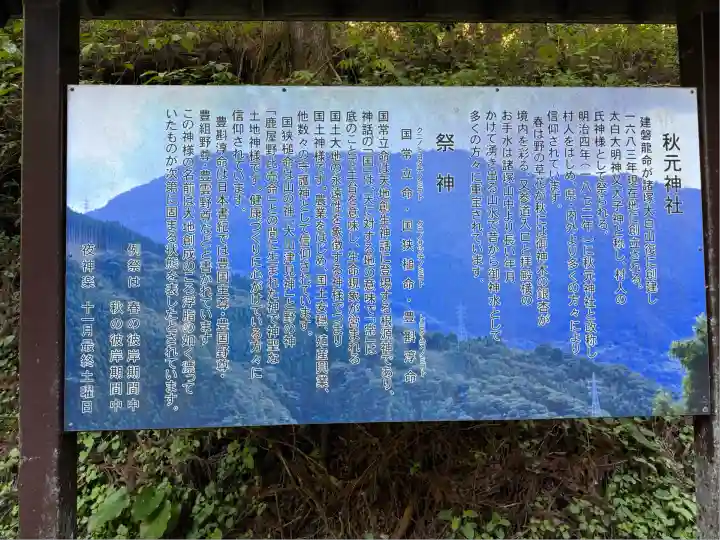 秋元神社
建磐龍命が諸塚太白山後に創建し
一六八三年現在居に創立される。
太白大明神又太子神と称し、村人の
氏神様として祭られる。
明治四年(一八七二年)に秋元神社と改称し
村人をはじめ、県の内外より多くの方々により
信仰されています。
春は野の草花が秋には御神木の銀杏が
境内を彩る、又参道入口と拝殿横の
お手水は諸塚山中より長い年月
かけて湧き出る山水で昔から御神水として
多くの方々に重宝されています。
祭神
国常立命・国狭槌命・豊斟渟命
国常立命は天地創生神話に登場する根源神であり、
神話の「国」は、「天」に対する地の意味で「常」は
底のことで土台を意味し、生命現象が営まれる
国土大地の永遠性を象徴する神様で、つまり
国土神様です。農業をはじめ、国土安穏、殖産興業、
他数々の守護神として信仰されています。
国狭槌命は山の神「大山津見神」と野の神
「鹿屋野比売命」との間に生まれた地の神聖な
土地神様です。健康づくりに心がけている方々に
信仰されています。
豊斟渟命は日本書紀では豊国主尊・豊国野尊・
豊組野尊・豊雲野尊などと書かれています
この神様の名前は大地創成のころ浮脂の如く漂って
いたものが次第に固まる状態を表したとされています。
例祭は 春の彼岸期間中
秋の彼岸期間中
夜神楽 十一月最終土曜日